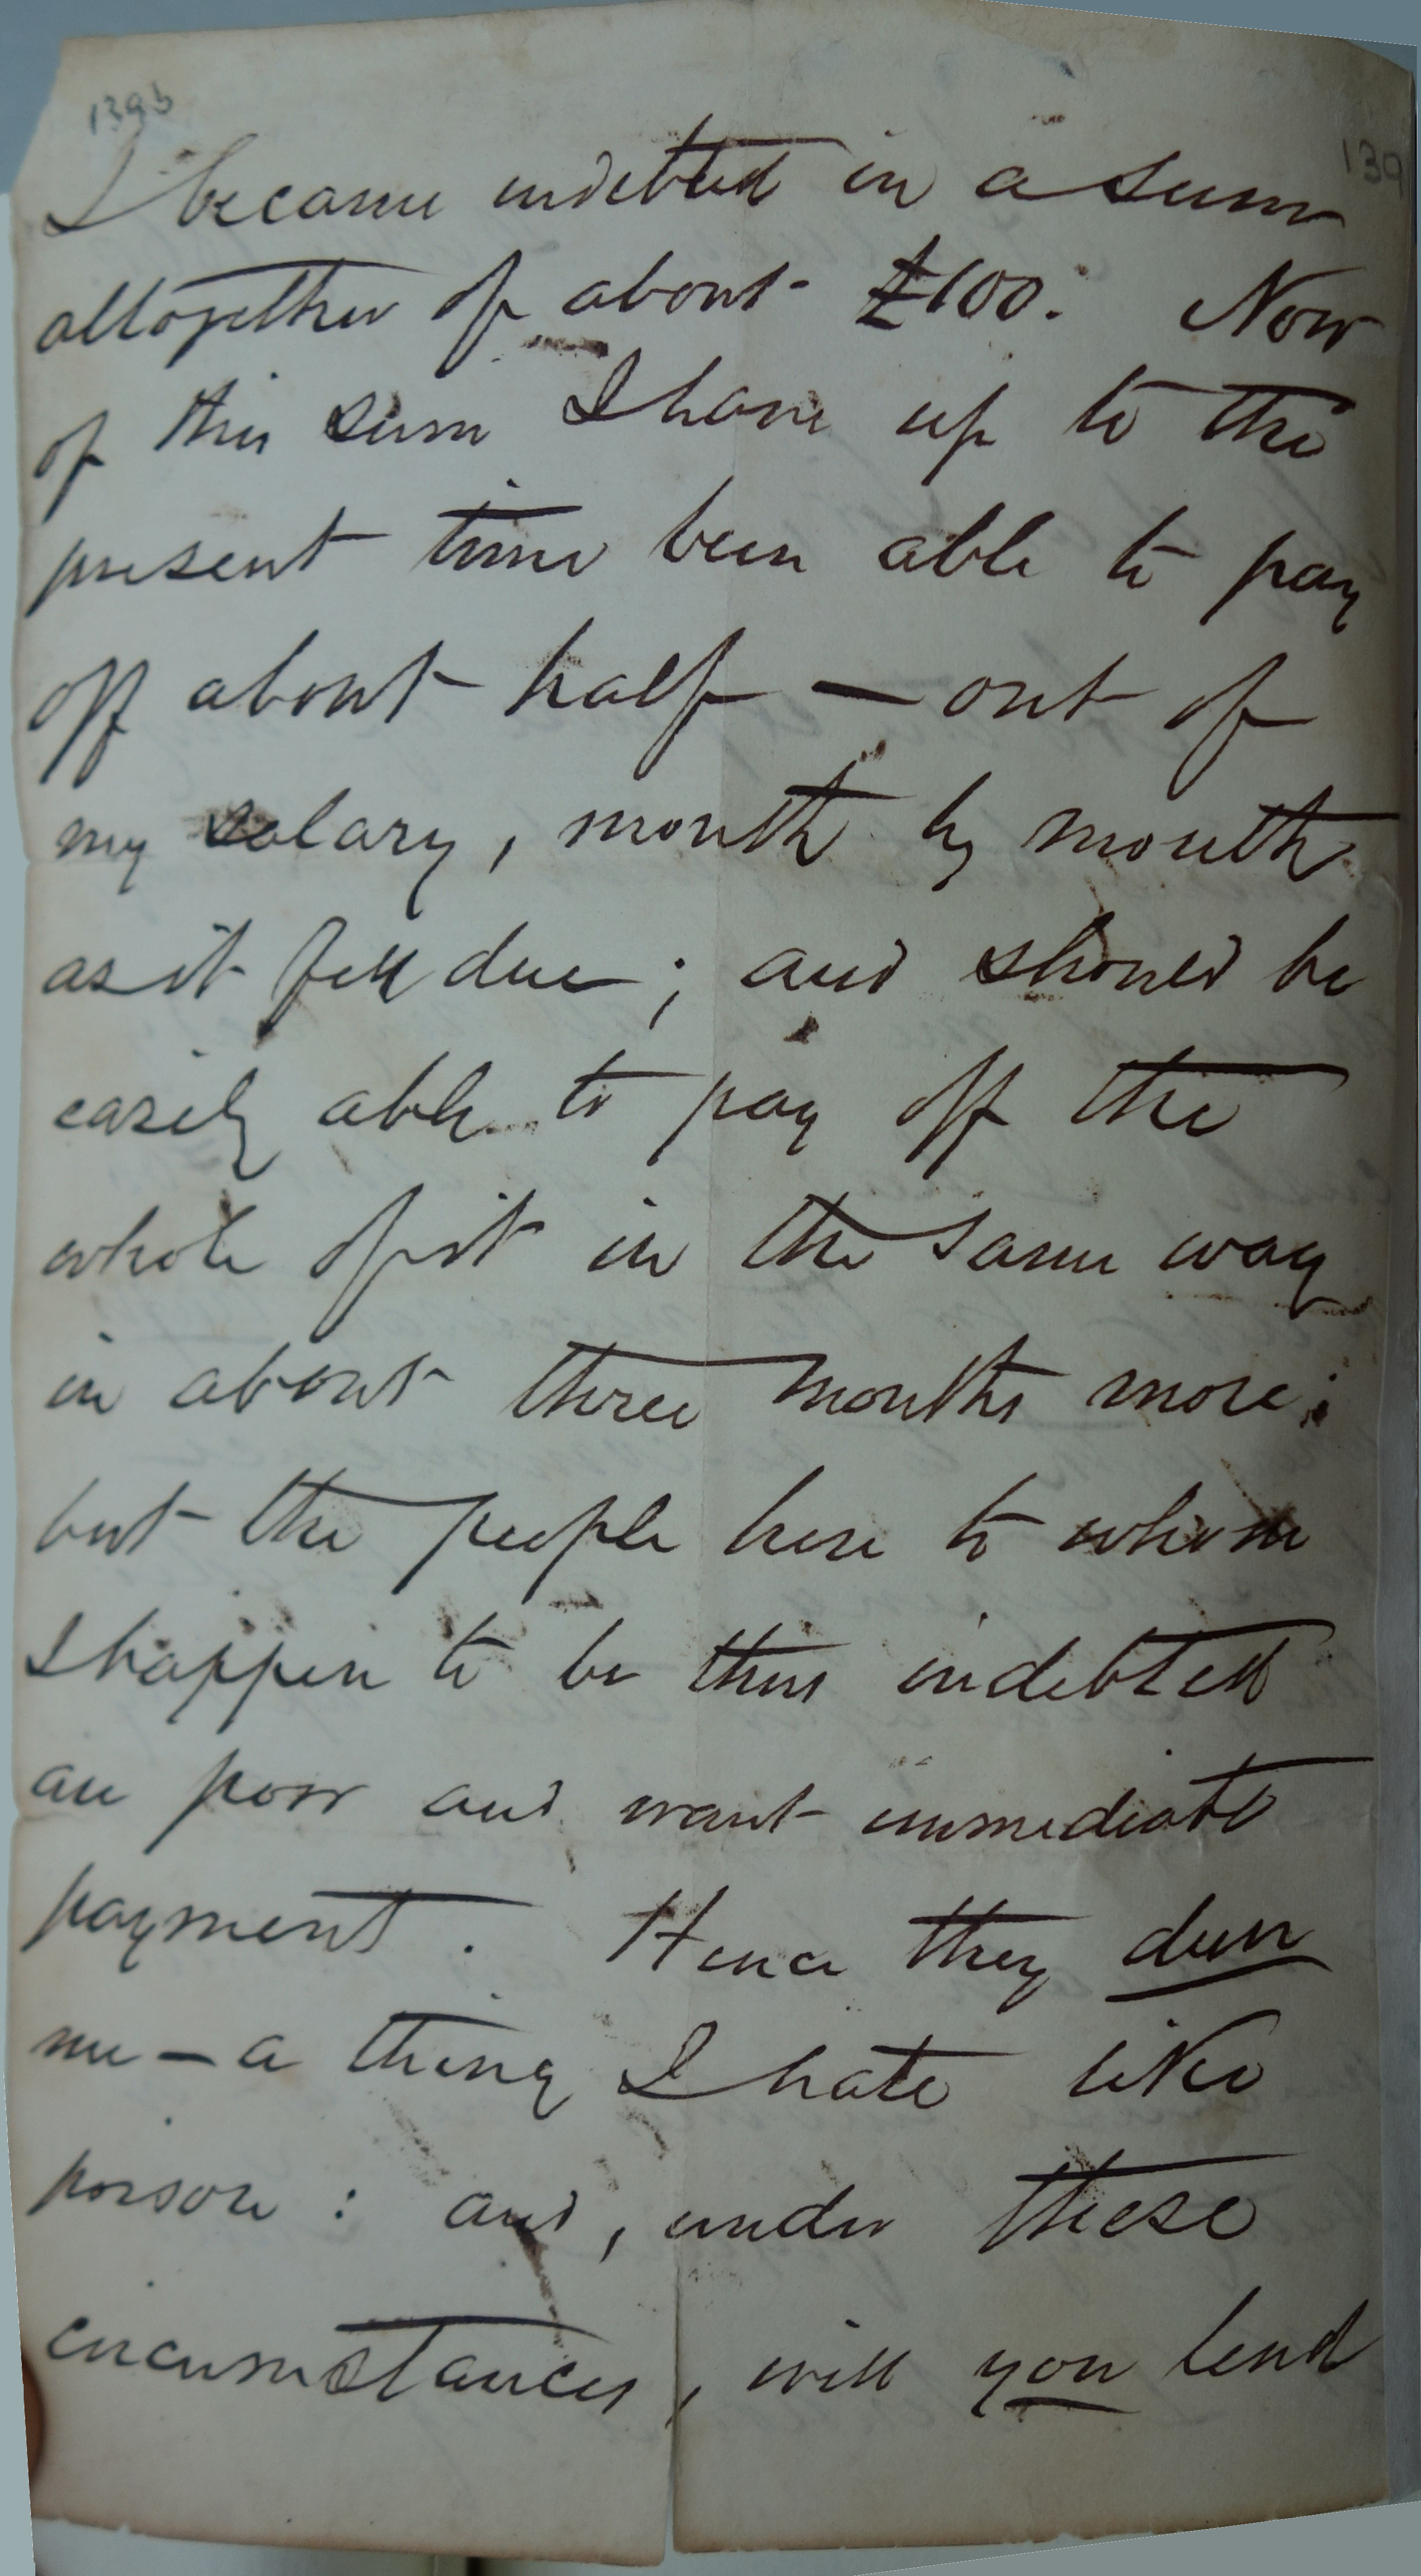 139b
139
I became indebted in a sum
altogether of about £100. Now
of this sum I have up to the
present time been able to pay
off about half — out of
my salary, month by month
as it fell due; and should be
easily able to pay off the
whole of it in the same way
in about three months more;
but the people here to whom
I happen to be thus indebted
are poor and want immediate
payment. Hence they dun
me — a thing I hate like
poison: and, under these
circumstances, will you lend